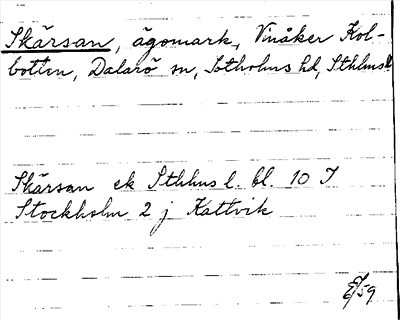 Skärsan, ägomark, Vinåker Kol-
botten, Dalarö sn, Sotholms hd, Sthlms l
Skärsan ek Sthlms l. bl. 10 I
Stockholm 2 j Kattvik
E/59